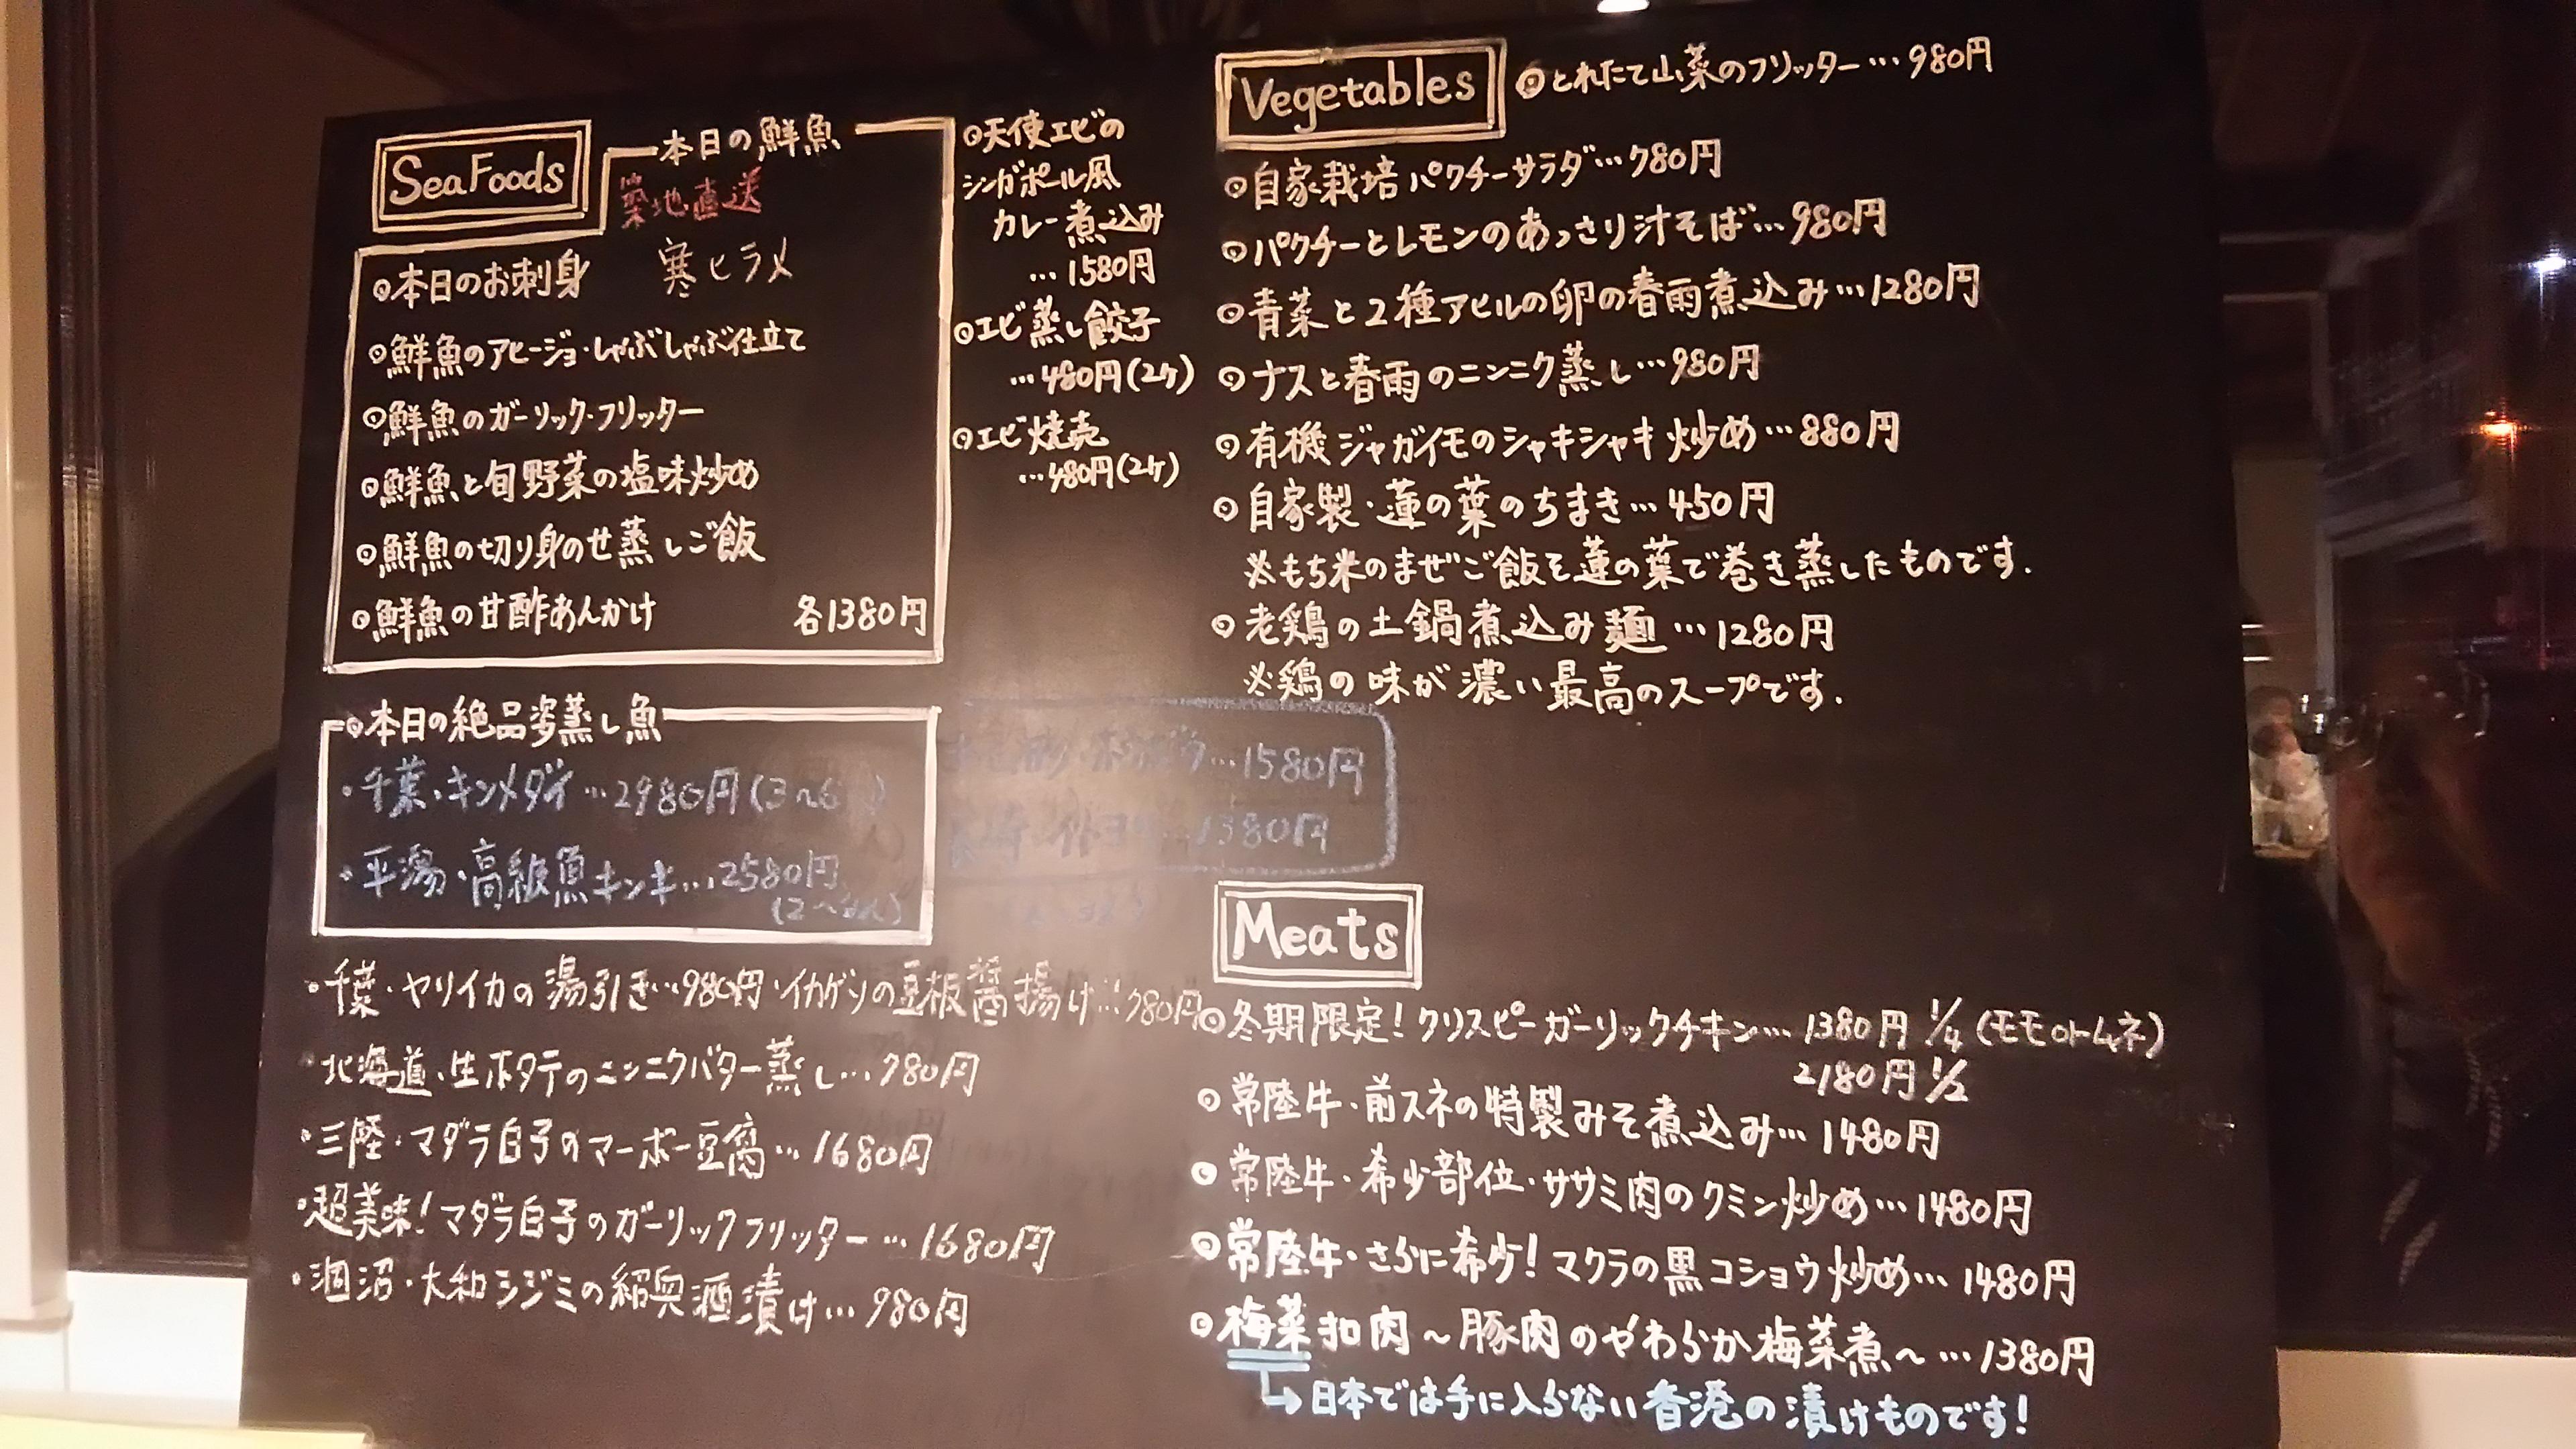 SeaFoods
本日の鮮魚
築地直送
寒ヒラメ
◎本日のお刺身
◎鮮魚のアヒージョ・しゃぶしゃぶ仕立て
◎鮮魚のガーリック・フリッター
◎鮮魚と旬野菜の塩味炒め
◎鮮魚の切り身のせ蒸しご飯
◎鮮魚の甘酢あんかけ 各1380円
◎天使エビの
シンガポール風
カレー煮込み
…1580円
◎エビ蒸し餃子
…480円(2ケ)
◎エビ焼売
…480円(2ケ)
◎本日の絶品姿蒸し魚
・千葉・キンメダイ…2980円(3~6
・平潟・高級魚キンキ…2580円
…1580円
…1380円
・千葉・ヤリイカの湯引き…980円・イカゲソの豆板醤揚げ…780円
・北海道・生ホタテのニンニクバター蒸し…780円
・三陸・マダラ白子のマーボー豆腐…1680円
・超美味!マダラ白子のガーリックフリッター…1680円
・涸沼・大和シジミの紹興酒漬け…980円
Vegetables
◎とれたて山菜のフリッター…980円
◎自家栽培パクチーサラダ…780円
◎パクチーとレモンのあっさり汁そば…980円
◎青菜と2種アヒルの卵の春雨煮込み…1280円
◎ナスと春雨のニンニク蒸し…980円
◎有機ジャガイモのシャキシャキ炒め…880円
◎自家製・蓮の葉のちまき…450円
※もち米のまぜご飯を蓮の葉で巻き蒸したものです.
◎老鶏の土鍋煮込み麺…1280円
※鶏の味が濃い最高のスープです.
Meats
◎冬期限定!クリスピーガーリックチキン…1380円 1/4(モモorムネ)
2180円 1/2
◎常陸牛・前スネの特製みそ煮込み…1480円
◎常陸牛・希少部位・ササミ肉のクミン炒め…1480円
◎常陸牛・さらに希少!マクラの黒コショウ炒め…1480円
◎梅菜扣肉~豚肉のやわらか梅菜煮~…1380円
↳日本では手に入らない香港の漬けものです!